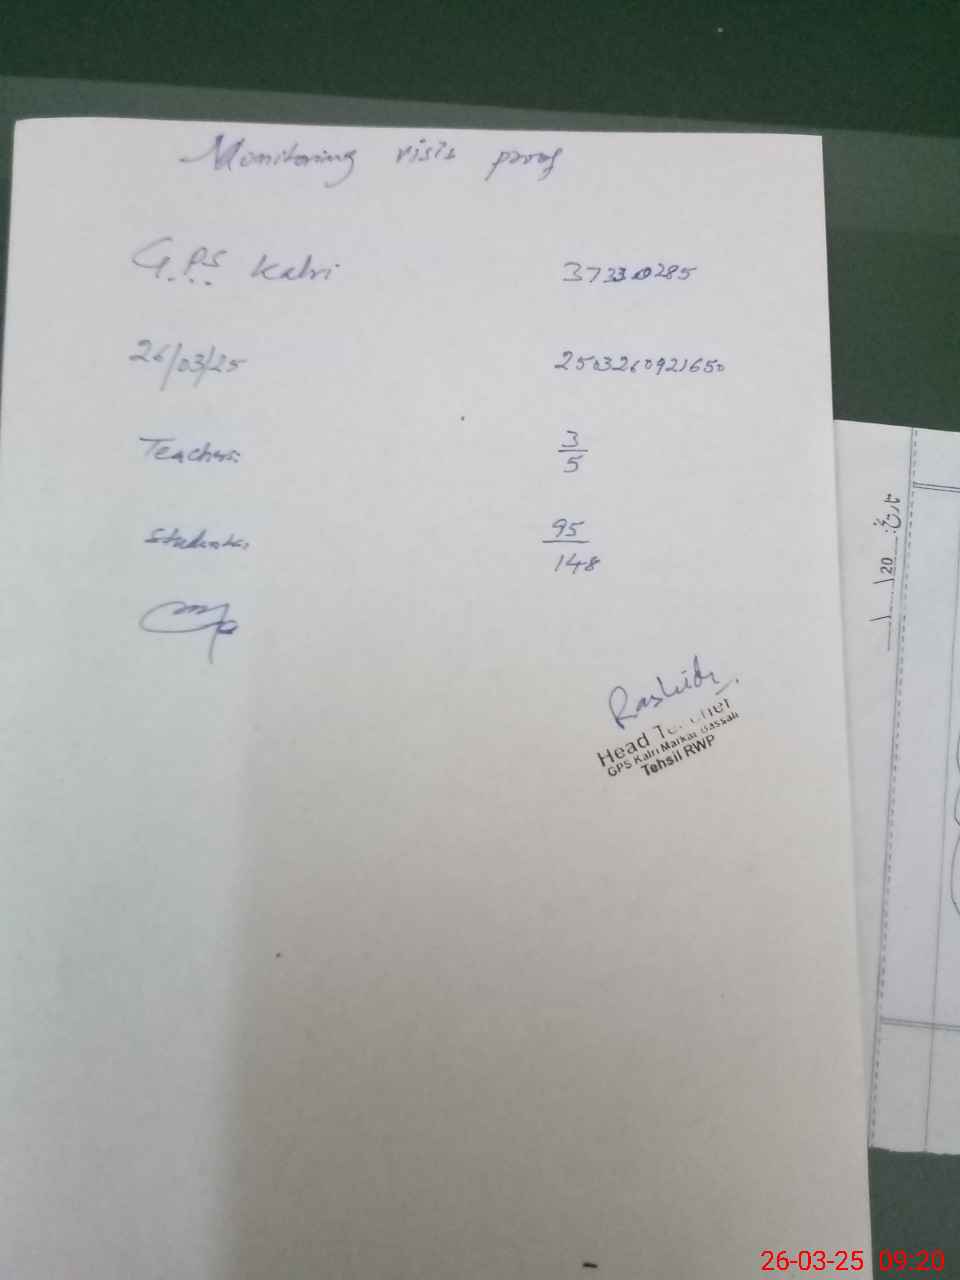 Monitoring visit proof
G.P.S Kalri 37330285
26/03/25 2503260921650
Teachers 3/5
Students 95/148
Rashida
Head Teacher
GPS Kalri Markaz Bassali
Tehsil RWP
تاریخ: 20
26-03-25 09:20